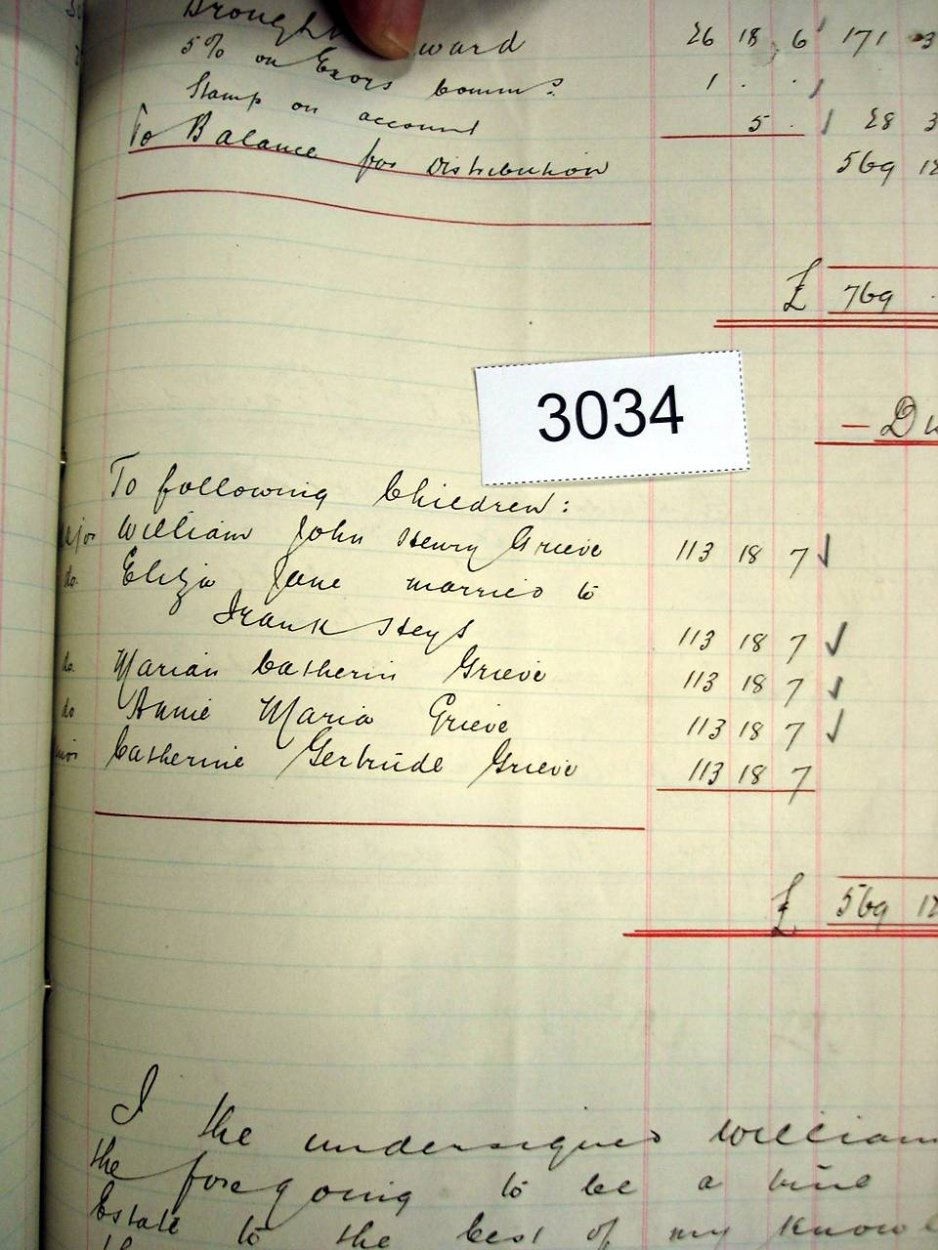 Brought ward 26 18 6 171 3
5% on Exors Commn: 1 . .
Stamp on account 5 . 28 3
To Balance for Distribution 569 12
£ 769 .
3034
— Di
To following Children:
ajor William John Henry Grieve 113 18 7 ✓
do. Eliza Jane married to
Frank Heys 113 18 7 ✓
do. Marian Catherin Grieve 113 18 7 ✓
do Annie Maria Grieve 113 18 7 ✓
Catherine Gertrude Grieve 113 18 7
£ 569 12
I the undersigned William
the foregoing to be a true
Estate to the best of my knowl